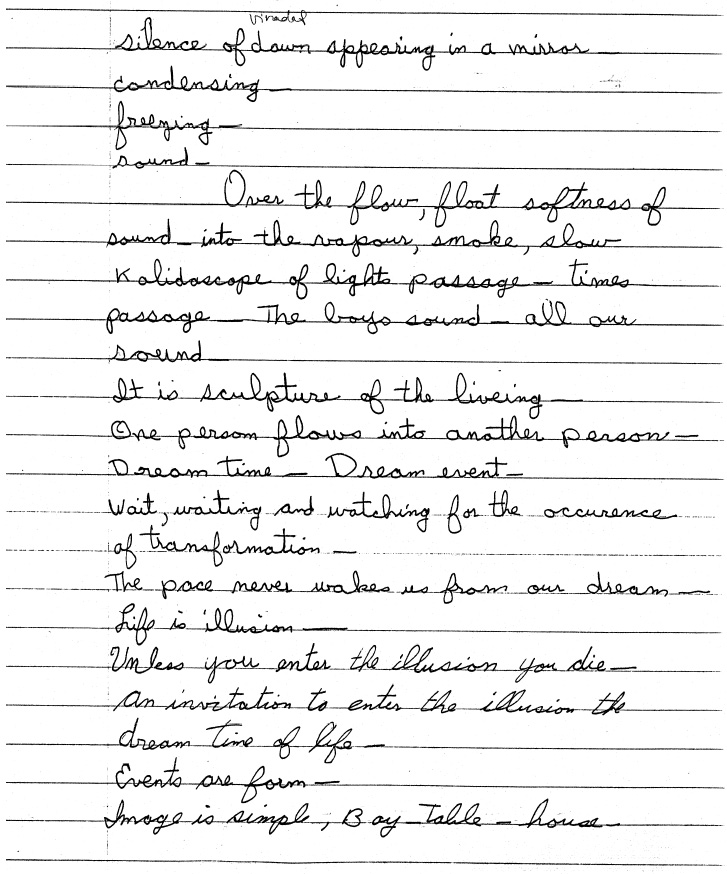 silence of dawn appearing in a mirror —
condensing —
freezing —
sound —
Over the flow, float softness of
sound — into the vapour, smoke, slow
Kalidascope of lights passage — times
passage — The boys sound — all our
sound —
It is sculpture of the liveing —
One person flows into another person —
Dream time — Dream event —
Wait, waiting and watching for the occurence
of transformation —
The pace never wakes us from our dream —
Life is illusion —
Unless you enter the illusion you die —
An invitation to enter the illusion the
dream time of life —
Events are form —
Image is simple, Boy — Table — house —